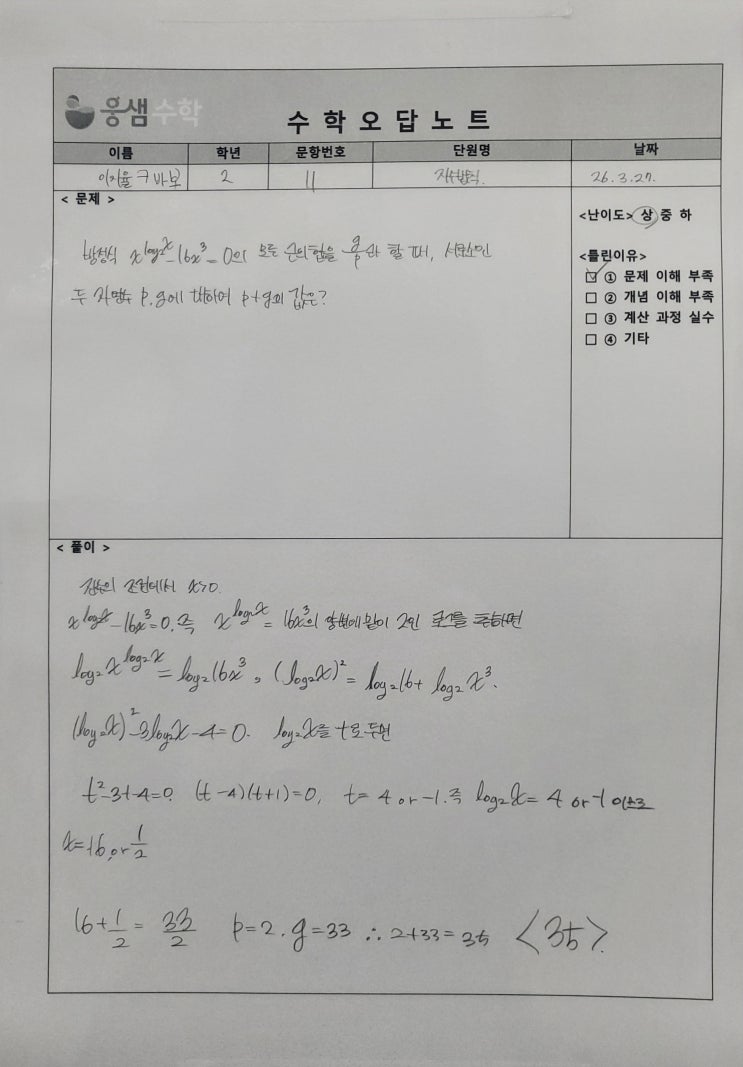 웅샘수학
수학오답노트
이름 학년 문항번호 단원명 날짜
이지율 ㅋ 바보 2 11 26.3.27.
< 문제 >
방정식 x^log₂x - 16x³ = 0의 모든 근의 합을 q/p 라 할 때, 서로소인
두 자연수 p, q에 대하여 p+q의 값은?
<난이도> 상 중 하
<틀린이유>
☑ ① 문제 이해 부족
□ ② 개념 이해 부족
□ ③ 계산 과정 실수
□ ④ 기타
< 풀이 >
조건에서 x>0.
x^log₂x - 16x³=0, 즉 x^log₂x = 16x³의 양변에 밑이 2인 로그를 취하면
log₂x^log₂x = log₂16x³, (log₂x)² = log₂16 + log₂x³.
(log₂x)² - 3log₂x - 4 = 0. log₂x를 t로 두면
t²-3t-4=0. (t-4)(t+1)=0, t= 4 or -1. 즉 log₂x = 4 or -1 이므로
x=16, or 1/2
16+1/2 = 33/2 p=2, q=33 ∴ 2+33=35 <35>.